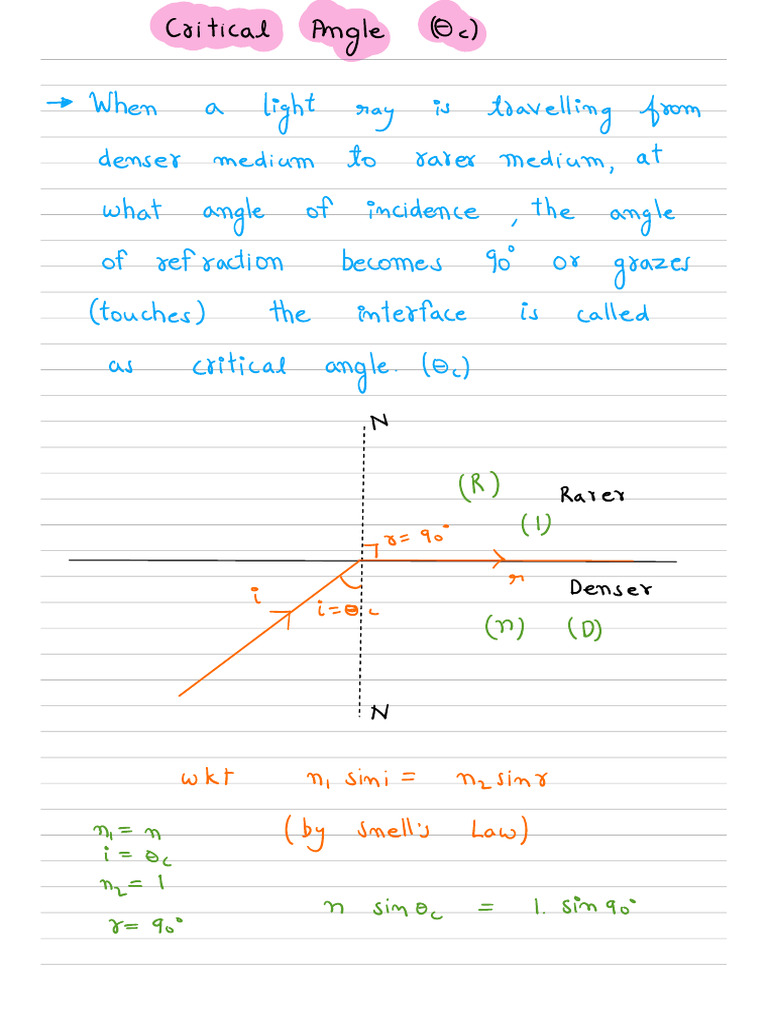 Critical Angle (θc)
→ When a light ray is travelling from
denser medium to rarer medium, at
what angle of incidence, the angle
of refraction becomes 90° or grazes
(touches) the interface is called
as critical angle. (θc)
N
(R)
Rarer
(1)
r = 90°
r
Denser
i
i = θc
(n) (D)
N
wkt n₁ sin i = n₂ sin r
(by Snell's Law)
n₁ = n
i = θc
n₂ = 1
r = 90°
n sin θc = 1. sin 90°